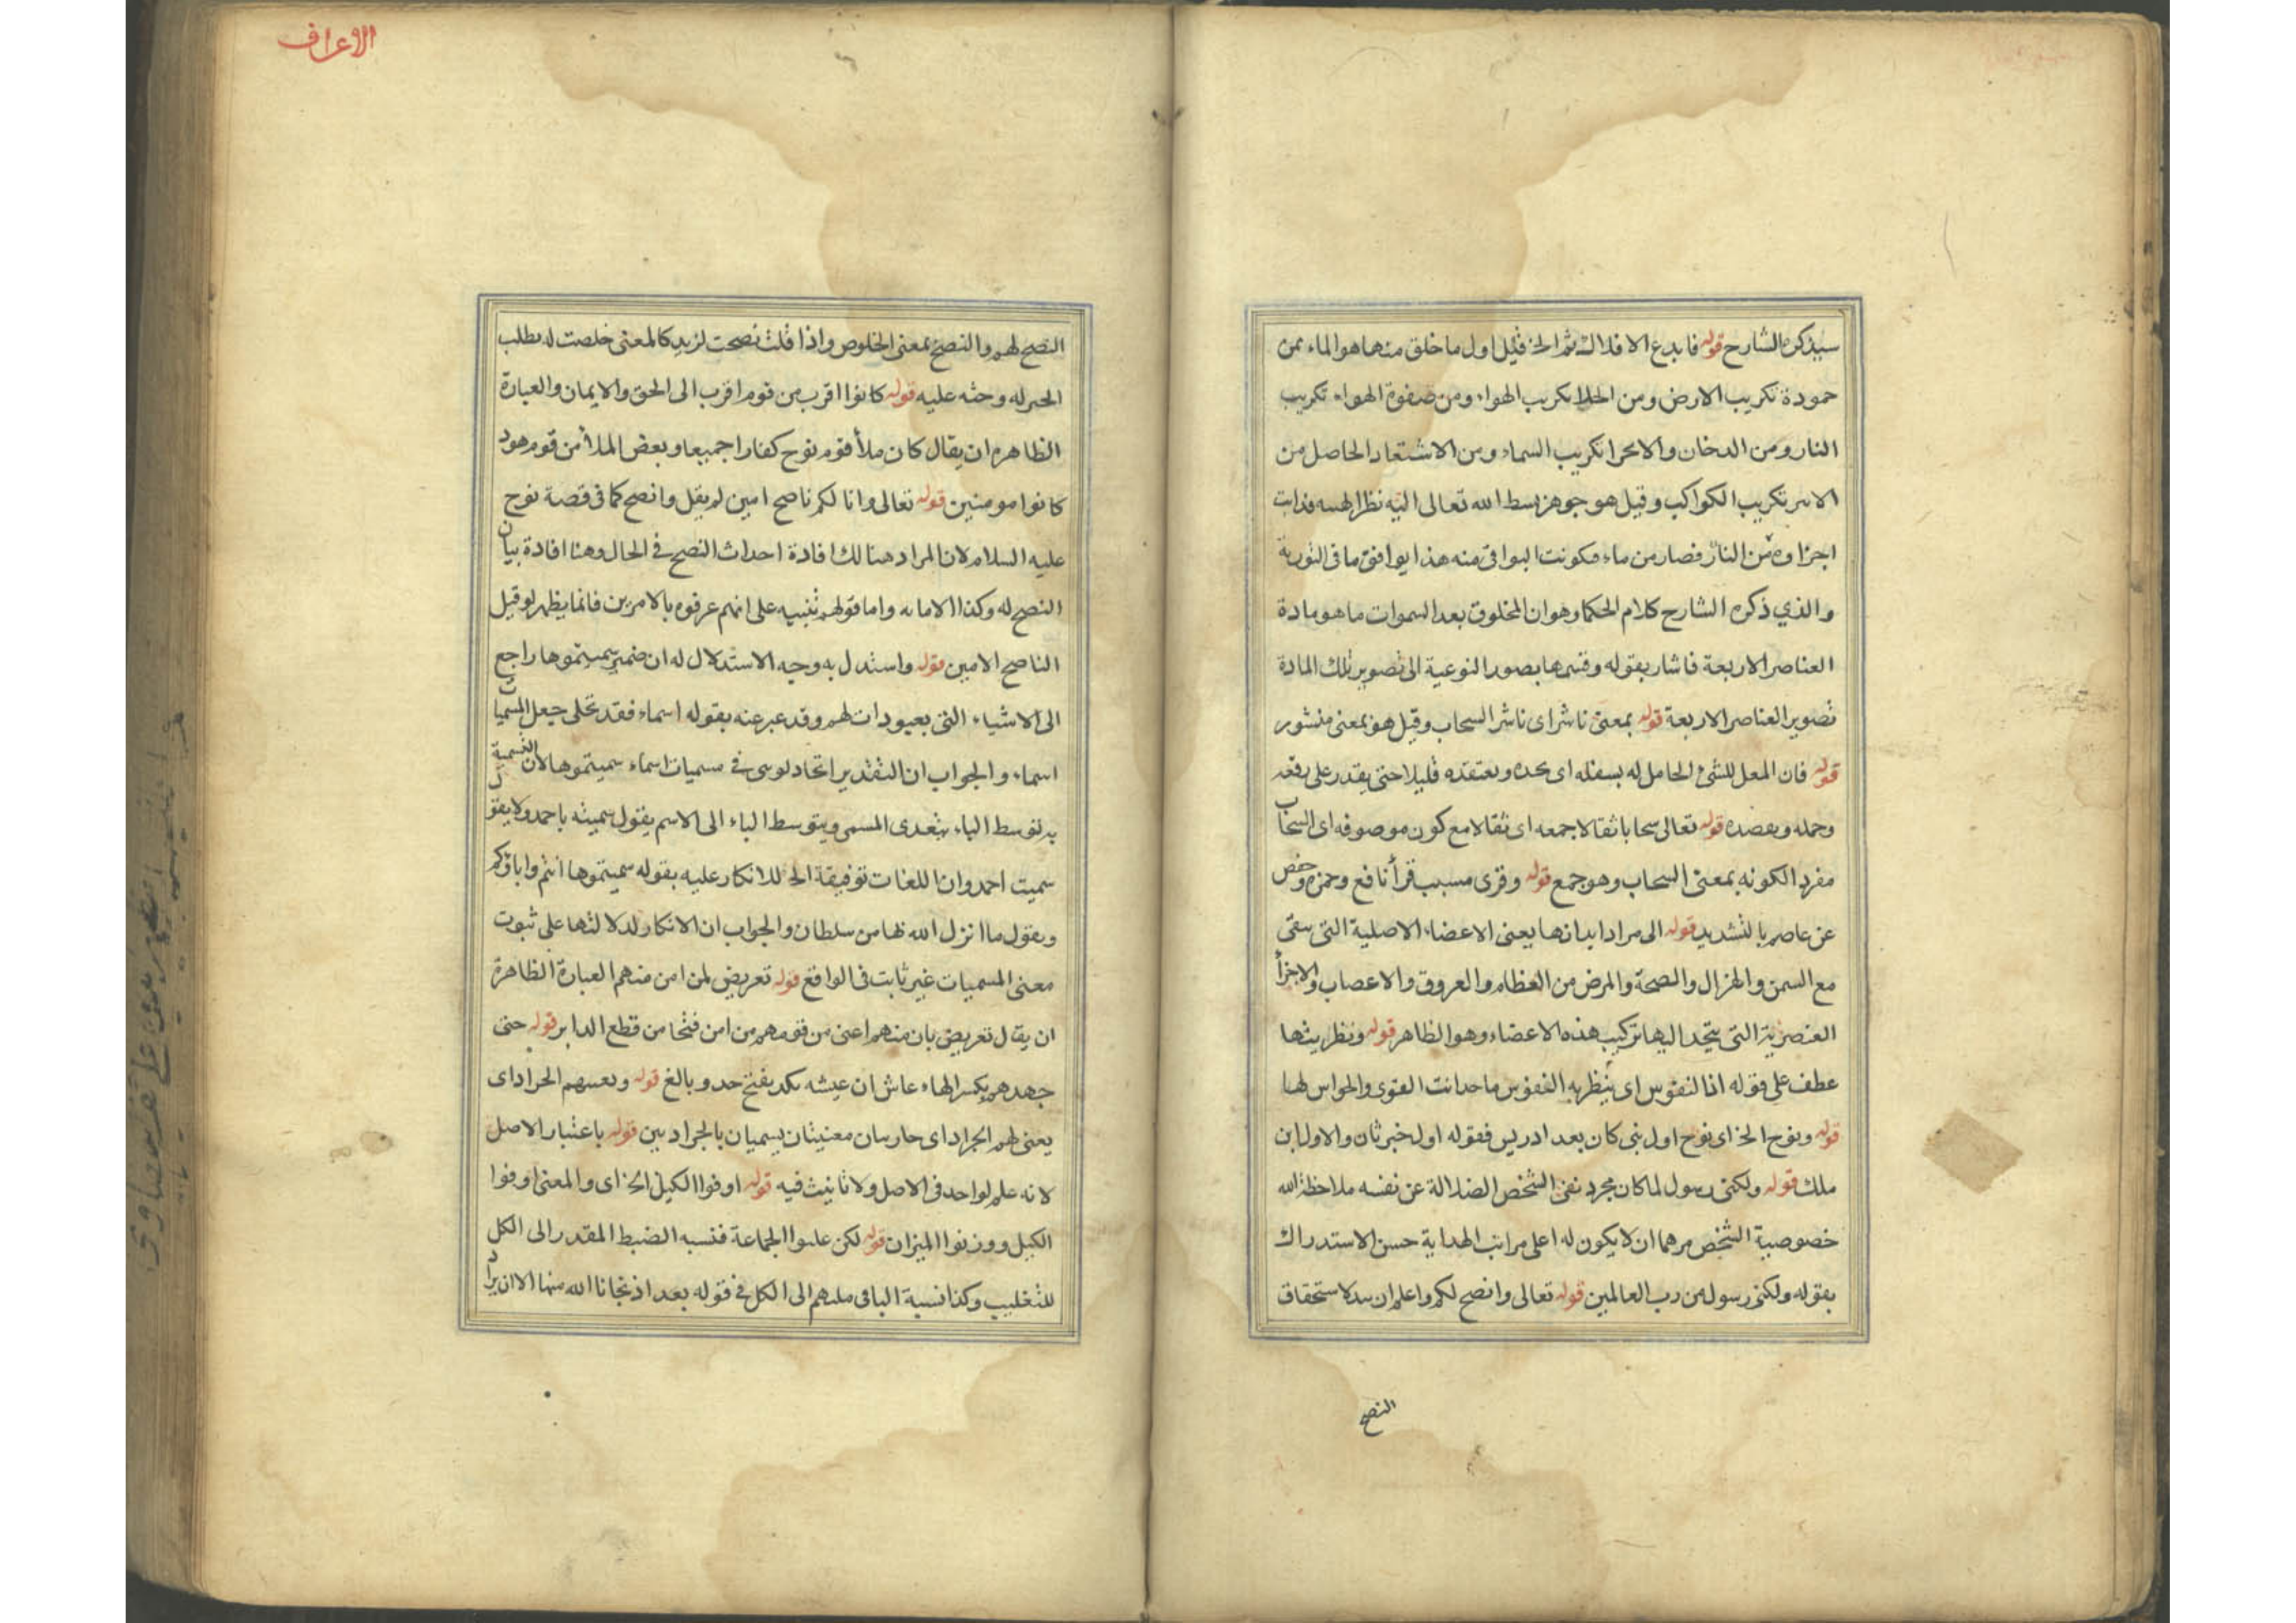 سيذكره الشارح قوله فابدع الافلاك ثم الخ فقيل اول ما خلق منهما هو الماء ثمن
حمودة تكريب الارض ومن الحلا تكريب الهواء ومن صفوة الهواء تكريب
النار ومن الدخان والابحرا تكريب السماء ومن الاشتعاد الحاصل من
تكريب الكواكب وقيل هو جوهر بسط الله تعالى اليه نظر الهيبه فذابت
اجزاوه من النار فصار من ماء فكونت البواقى منه هذا يوافق ما فى التورية
والذي ذكره الشارح كلام الحكما وهو ان المخلوق بعد السموات ما هو مادة
العناصر الاربعة فاشار بقوله وقسمها بصور النوعية الى تصوير تلك المادة
تصوير العناصر الاربعة قوله بمعنى ناشر اى ناشر السحاب وقيل هو بمعنى منشور
قوله فان المعل للشئ الحامل له يسفله اى يحده ويعتقده قليلا حتى يقدر على رفعه
وحمله قوله تعالى سحابا ثقالا جمعه اى ثقالا مع كون موصوفه اى السحاب
مفردا لكونه بمعنى السحاب وهو جمع قوله وقرى مسبب قرأ نافع وحمزه وحفص
عن عاصم بالتشديد قوله الى مراد ابدانها يعنى الاعضاء الاصلية التى يبقى
مع السمن والهزال والصحة والمرض من العظام والعروق والاعصاب والاجزأ
العنصرية التى يتحد اليها تركيب هذه الاعضاء وهو الظاهر قوله ونظريتها
عطف على قوله النفوس اى ينظر به النفوس القوى والحواس لها
قوله ونوح الخ اى نوح اول نبى كان بعد ادريس فقوله اول خبر ثان والاول ابن
ملك قوله ولكنى رسول لما كان مجرد نفى الشخص الضلالة عن نفسه ملاحظة الله
خصوصية الشخص مرهما ان لا يكون له اعلى مراتب الهداية حسن الاستدراك
بقوله ولكنى رسول من رب العالمين قوله تعالى وانصح لكم واعلم ان
النصح
الاعراف
النصح لهم والنصح بمعنى الخلوص واذا قلت نصحت لزيد كالمعنى خلصت له بطلب
الخير له وحثه عليه قوله كانوا اقرب من قوم اقرب الى الحق والايمان والعبارة
الظاهره ان يقال كان ملأ قوم نوح كفارا جميعا وبعض الملأ من قوم هود
كانوا مومنين قوله تعالى وانا لكم ناصح امين لم يقل وانصح كما فى قصة نوح
عليه السلام لان المراد هنالك افادة احداث النصح فى الحال وهنا افادة بيان
النصح له وكذا الامانه واما قولهم تنبيه على انهم عرفوه بالامرين فانما يظهر لو قيل
الناصح الامين قوله واستدل به وجه الاستدلال له ان ضمير سميتموها راجع
الى الاشياء التى يعبدوات لهم وقد عبر عنه بقوله اسماء فقد تحلى جعل المسميات
اسماء والجواب ان التقدير اتحاد فى مسميات اسماء سميتموها لان التسمية
بتوسط الباء يتعدى المسمى ويتوسط الباء الى الاسم يقول سميته باحمد ولا يقول
سميت احمد وان اللغات توفيقة الخ للانكار عليه بقوله سميتموها انتم واباؤكم
ويقول ما انزل الله بها من سلطان والجواب ان الانكار لدلالتها على ثبوت
معنى المسميات غير ثابت فى الواقع قوله تعريض لمن امن منهم العبارة الظاهرة
ان يقال تعريض بان منهم اعنى من قومهم من امن فنتحا من قطع الدابر قوله حتى
جهدهم بكسر الهاء عاش ان عيشه نكد بفتح حد وبالغ قوله الجراد اى
يعنى لهم الجراد اى حارسان معنيتان يسميان بالجرادبين قوله باعتبار الاصل
لانه علم لواحد فى الاصل ولا تانيث فيه قوله اوفوا الكيل الخ اى والمعنى اوفوا
الكيل ووزنوا الميزان قوله لكن غلبوا الجماعة فنسبه الضبط المقدر الى الكل
للتغليب وكذا نسبة الباقى منهم الى الكل فى قوله بعد اذ نجانا الله منها الا ان يراد